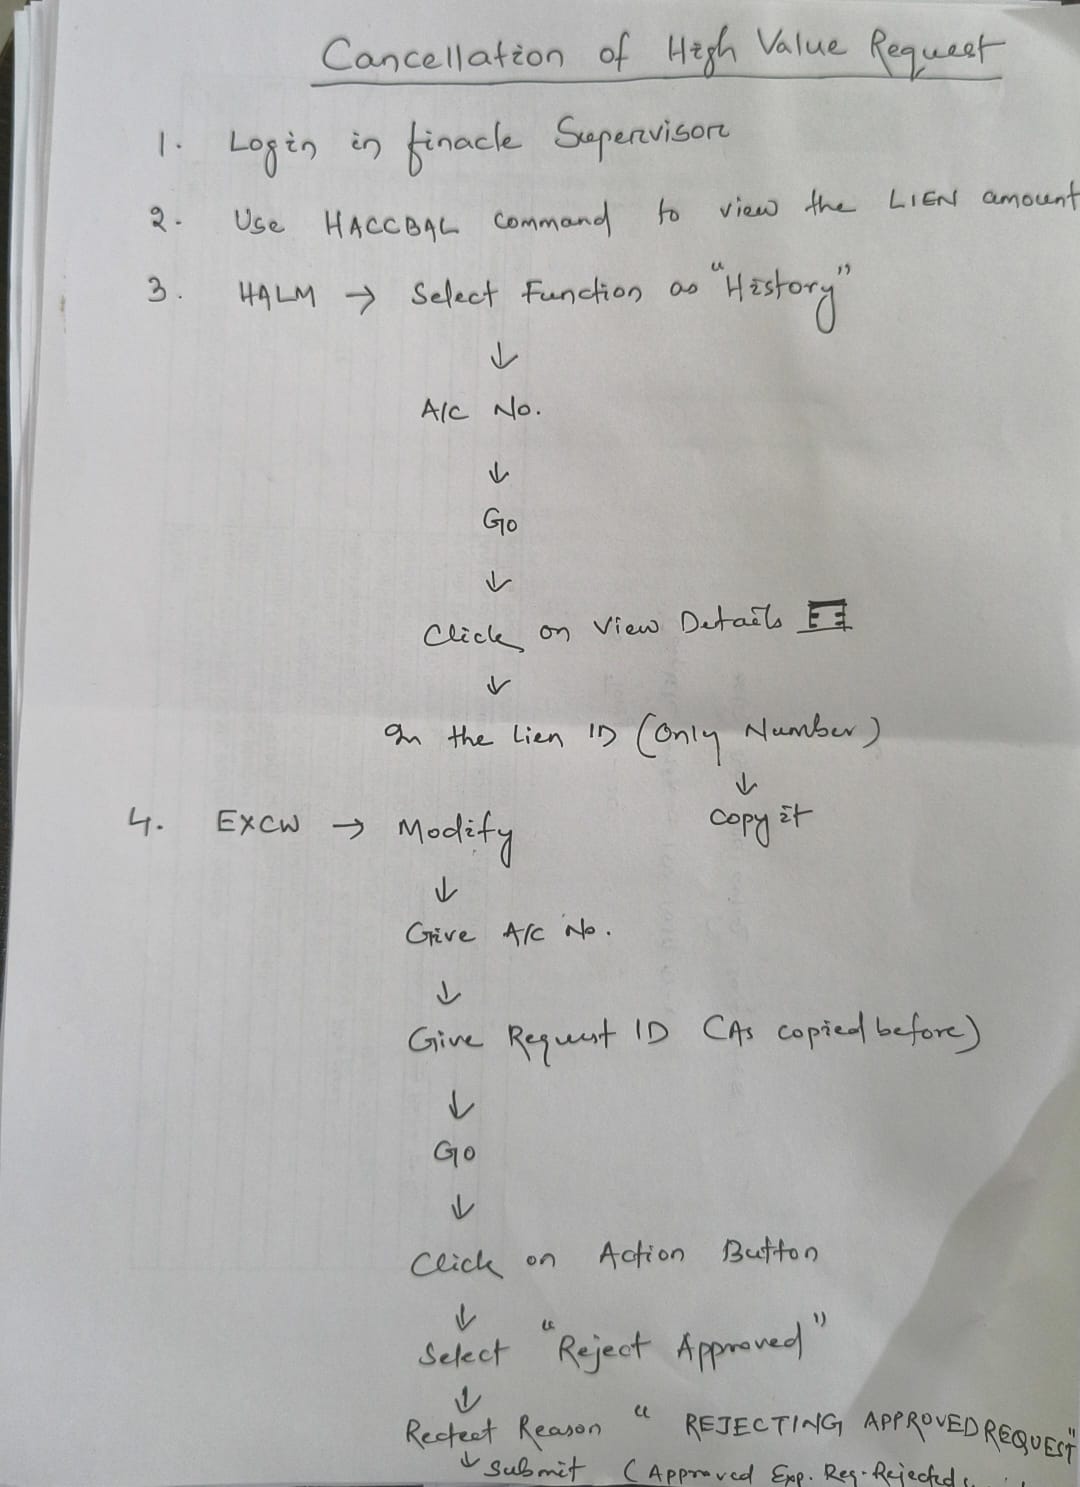 Cancellation of High Value Request
1. Login in finacle Supervisor
2. Use HACCBAL command to view the LIEN amount
3. HALM → Select Function as "History"
↓
A/C No.
↓
Go
↓
Click on View Details
↓
In the Lien ID (Only Number)
↓
Copy it
4. EXCW → Modify
↓
Give A/C No.
↓
Give Request ID (As copied before)
↓
Go
↓
Click on Action Button
↓
Select "Reject Approved"
↓
Reason " REJECTING APPROVED REQUEST"
↓ Submit (Approved Exp. Req. Rejected